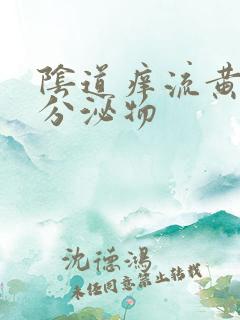 陰道癢流黃
分泌物
沈德鴻
未经同意禁止转载